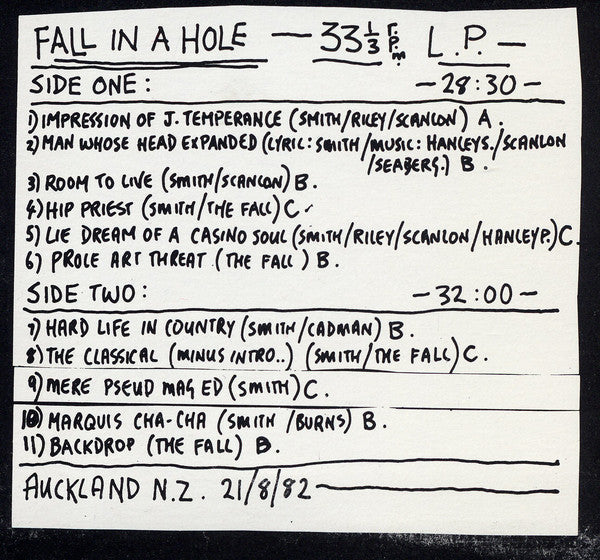 FALL IN A HOLE — 33 1/3 r.p.m L.P. —
SIDE ONE: — 28:30 —
1) IMPRESSION OF J. TEMPERANCE (SMITH/RILEY/SCANLON) A.
2) MAN WHOSE HEAD EXPANDED (LYRIC: SMITH/MUSIC: HANLEYS./SCANLON
/SEABERG.) B.
3) ROOM TO LIVE (SMITH/SCANLON) B.
4) HIP PRIEST (SMITH/THE FALL) C.
5) LIE DREAM OF A CASINO SOUL (SMITH/RILEY/SCANLON/HANLEYP.) C.
6) PROLE ART THREAT (THE FALL) B.
SIDE TWO: — 32:00 —
7) HARD LIFE IN COUNTRY (SMITH/CADMAN) B.
8) THE CLASSICAL (MINUS INTRO..) (SMITH/THE FALL) C.
9) MERE PSEUD MAG ED (SMITH) C.
10) MARQUIS CHA-CHA (SMITH/BURNS) B.
11) BACKDROP (THE FALL) B.
AUCKLAND N.Z. 21/8/82